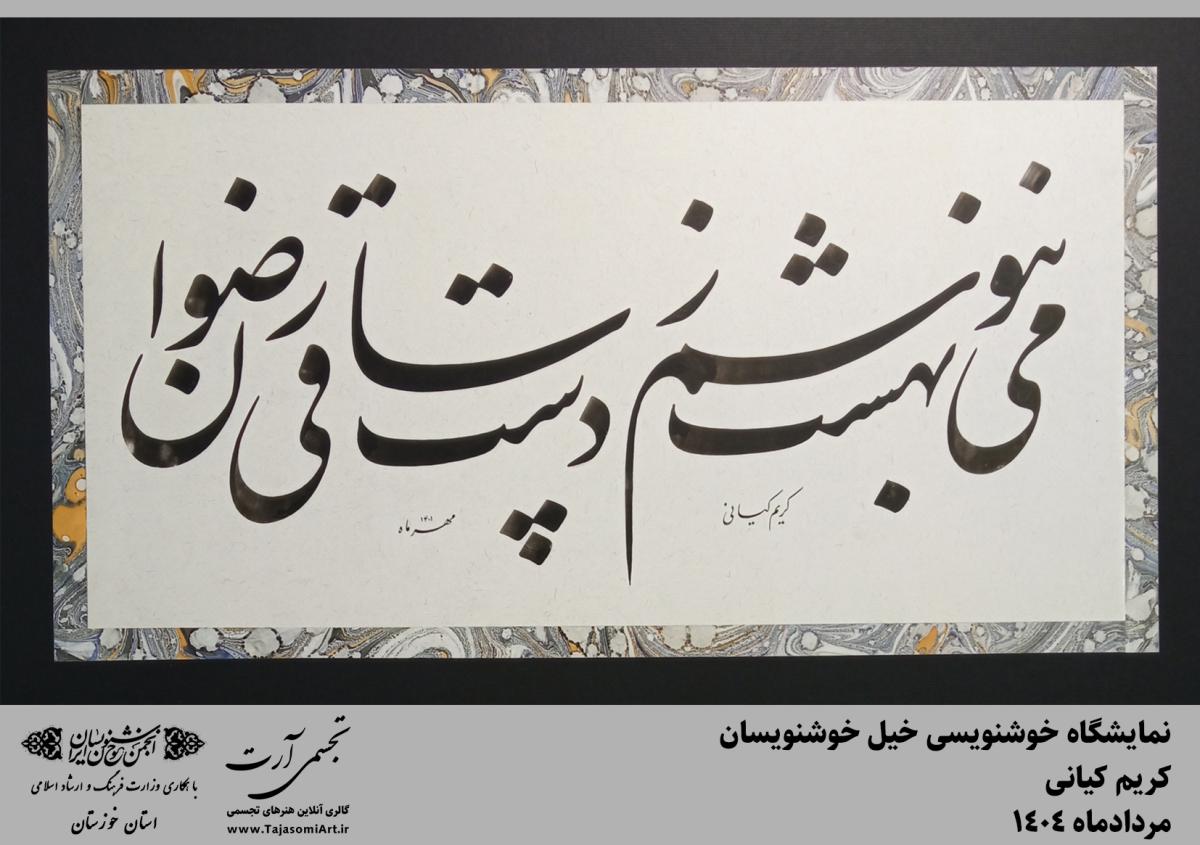 می بهشت ننوشم ز دست ساقی رضوان
کریم کیانی
مهرماه ۱۴۰۱
نمایشگاه خوشنویسی خیل خوشنویسان
کریم کیانی
مردادماه ۱۴۰۴
تجسمی آرت
گالری آنلاین هنرهای تجسمی
www.TajasomiArt.ir
انجمن خوشنویسان ایران
با همکاری وزارت فرهنگ و ارشاد اسلامی
استان خوزستان